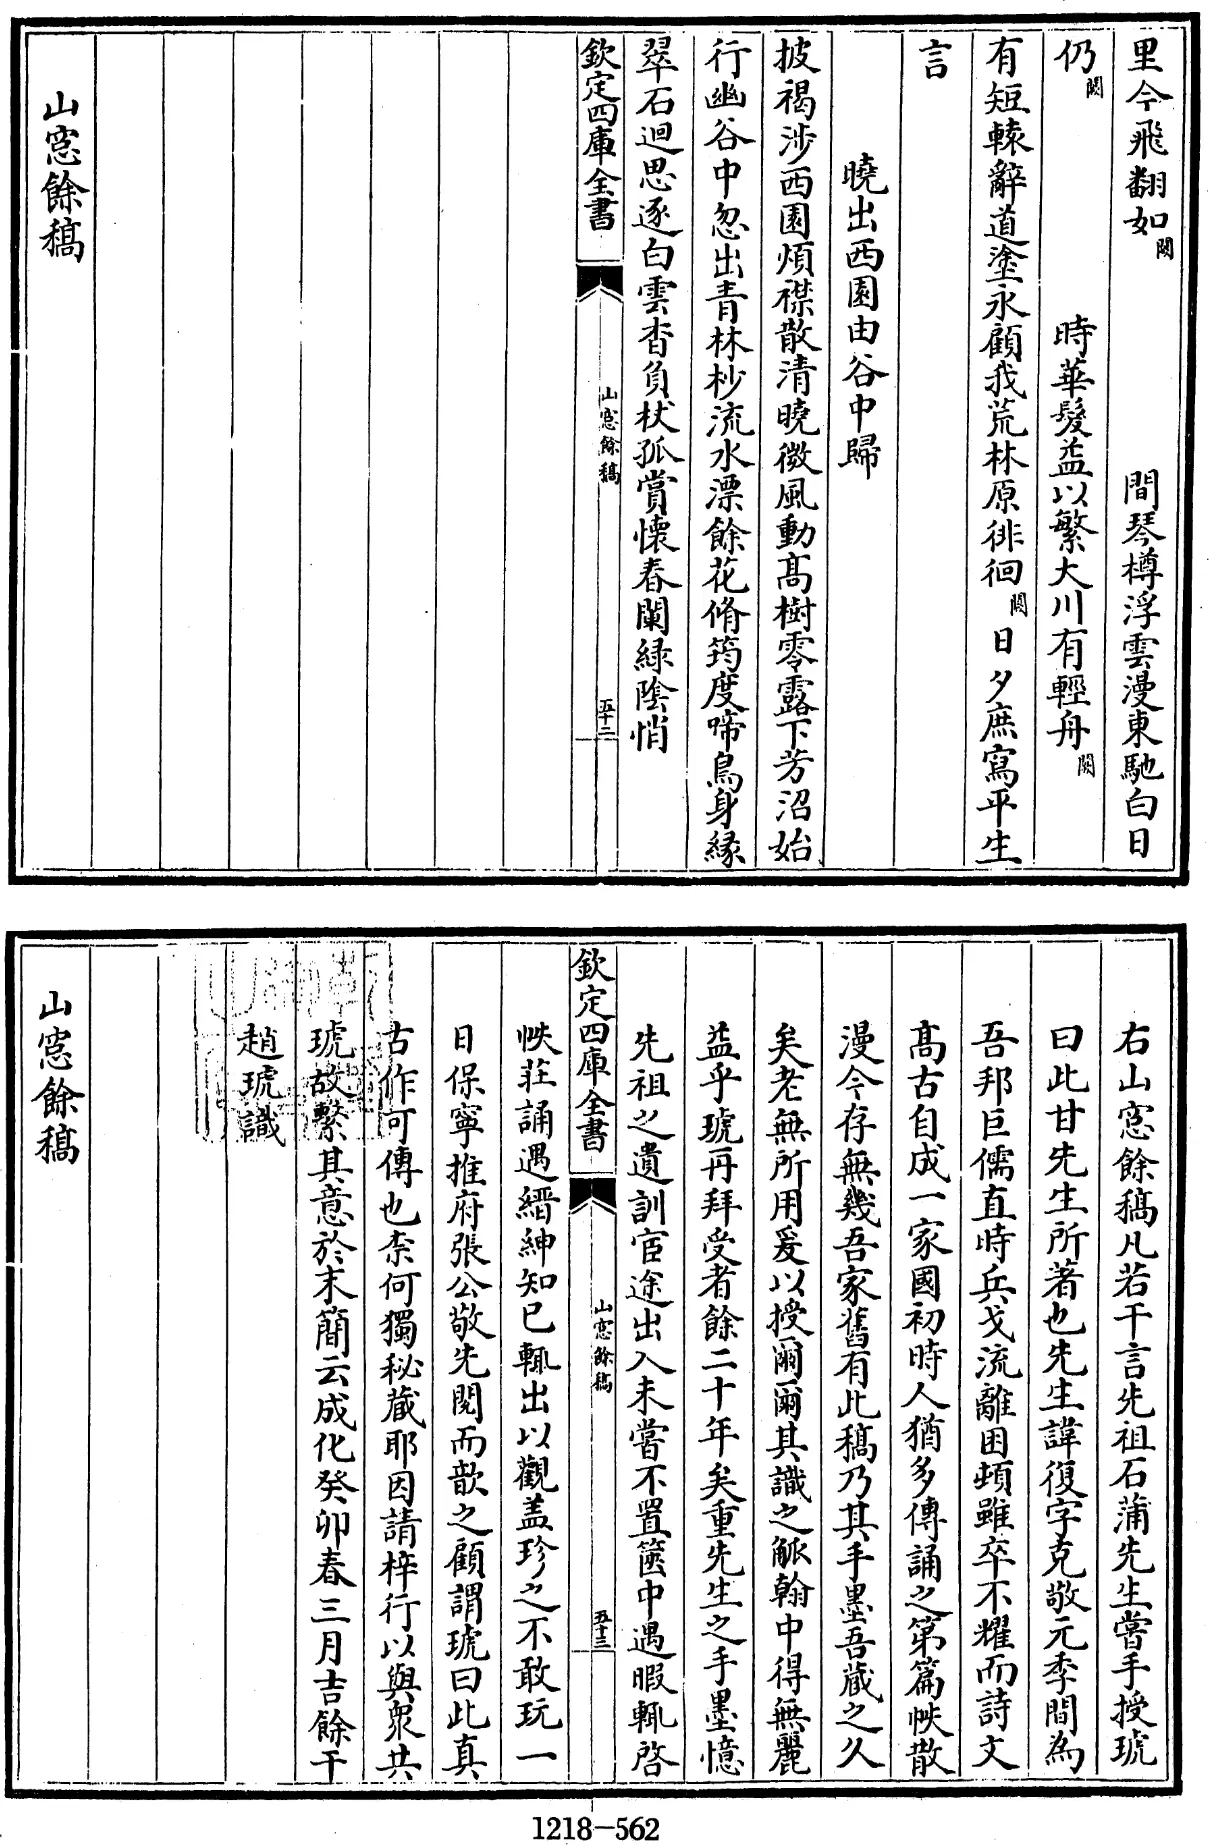 里今飛翻如闕　間琴樽浮雲漫東馳白日
仍闕　時華髮益以繁大川有輕舟闕
有短轅辭道塗永顧我荒林原徘徊闕日夕庶寫平生
言
曉出西園由谷中歸
披褐涉西園煩襟散清曉微風動髙樹零露下芳沼始
行幽谷中忽出青林杪流水漂餘花脩筠度啼鳥身緣
翠石迴思逐白雲杳負杖孤賞懷春闌緑陰悄
欽定四庫全書
山窓餘稿
五十二
山窓餘稿
右山窓餘稿凡若干言先祖石蒲先生嘗手授琥
曰此甘先生所著也先生諱復字克敬元季間為
吾邦巨儒直時兵戈流離困頓雖卒不耀而詩文
髙古自成一家國初時人猶多傳誦之第篇帙散
漫今存無幾吾家舊有此稿乃其手墨吾藏之久
矣老無所用爰以授爾爾其識之觚翰中得無麗
益乎琥再拜受者餘二十年矣重先生之手墨憶
先祖之遺訓宦途出入未嘗不置篋中遇暇輒啓
欽定四庫全書
山窓餘稿
五十三
帙莊誦遇縉紳知已輒出以觀盖珍之不敢玩一
日保寧推府張公敬先閱而歆之顧謂琥曰此真
古作可傳也柰何獨秘藏耶因請梓行以與衆共
琥故繫其意於末簡云成化癸卯春三月吉餘干
趙琥識
山窓餘稿
1218-562